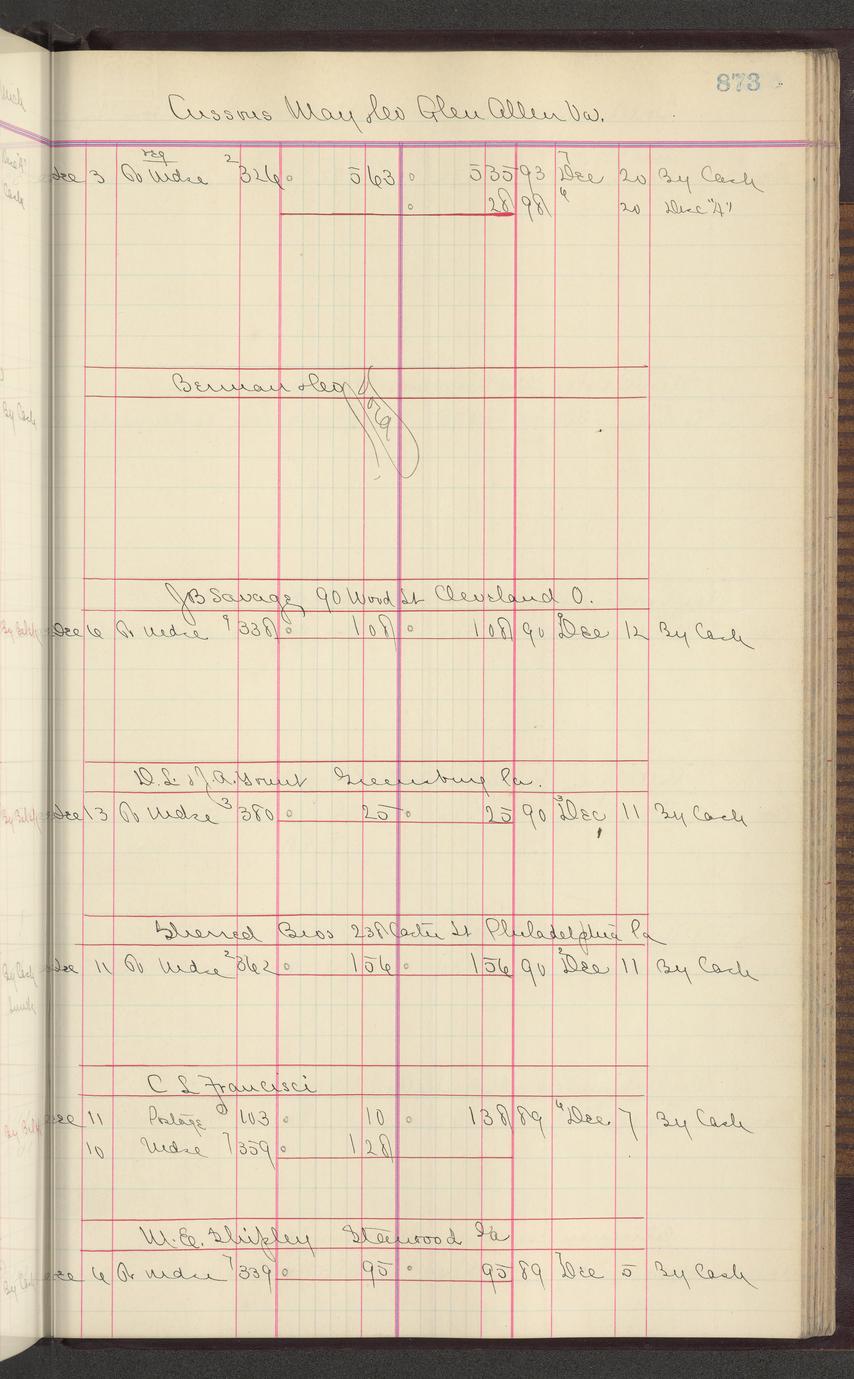 873
Cussons May & Co Glen Allen Va.
Dec 3 To Mdse 2 326 5 63 5 35 93 7 Dec 20 By Cash
28 98 6 20 Disc "A"
Berman & Co
J B Savage, 90 Wood St Cleveland O.
Dec 6 To Mdse 9 338 1 08 1 08 90 Dec 12 By Cash
D. L. & J. A. Greensburg Pa.
Dec 13 To Mdse 3 380 25 25 90 3 Dec 11 By Cash
Sherred Bros 238 St Philadelphia Pa
Dec 11 To Mdse 2 362 1 56 1 56 90 2 Dec 11 By Cash
C L Francisci
Dec 11 Postage 103 10 1 38 89 6 Dec. 7 By Cash
10 Mdse 7 359 1 28
M. E. Shipley Stanwood Ia
Dec 6 To Mdse 7 339 95 95 89 7 Dec 5 By Cash